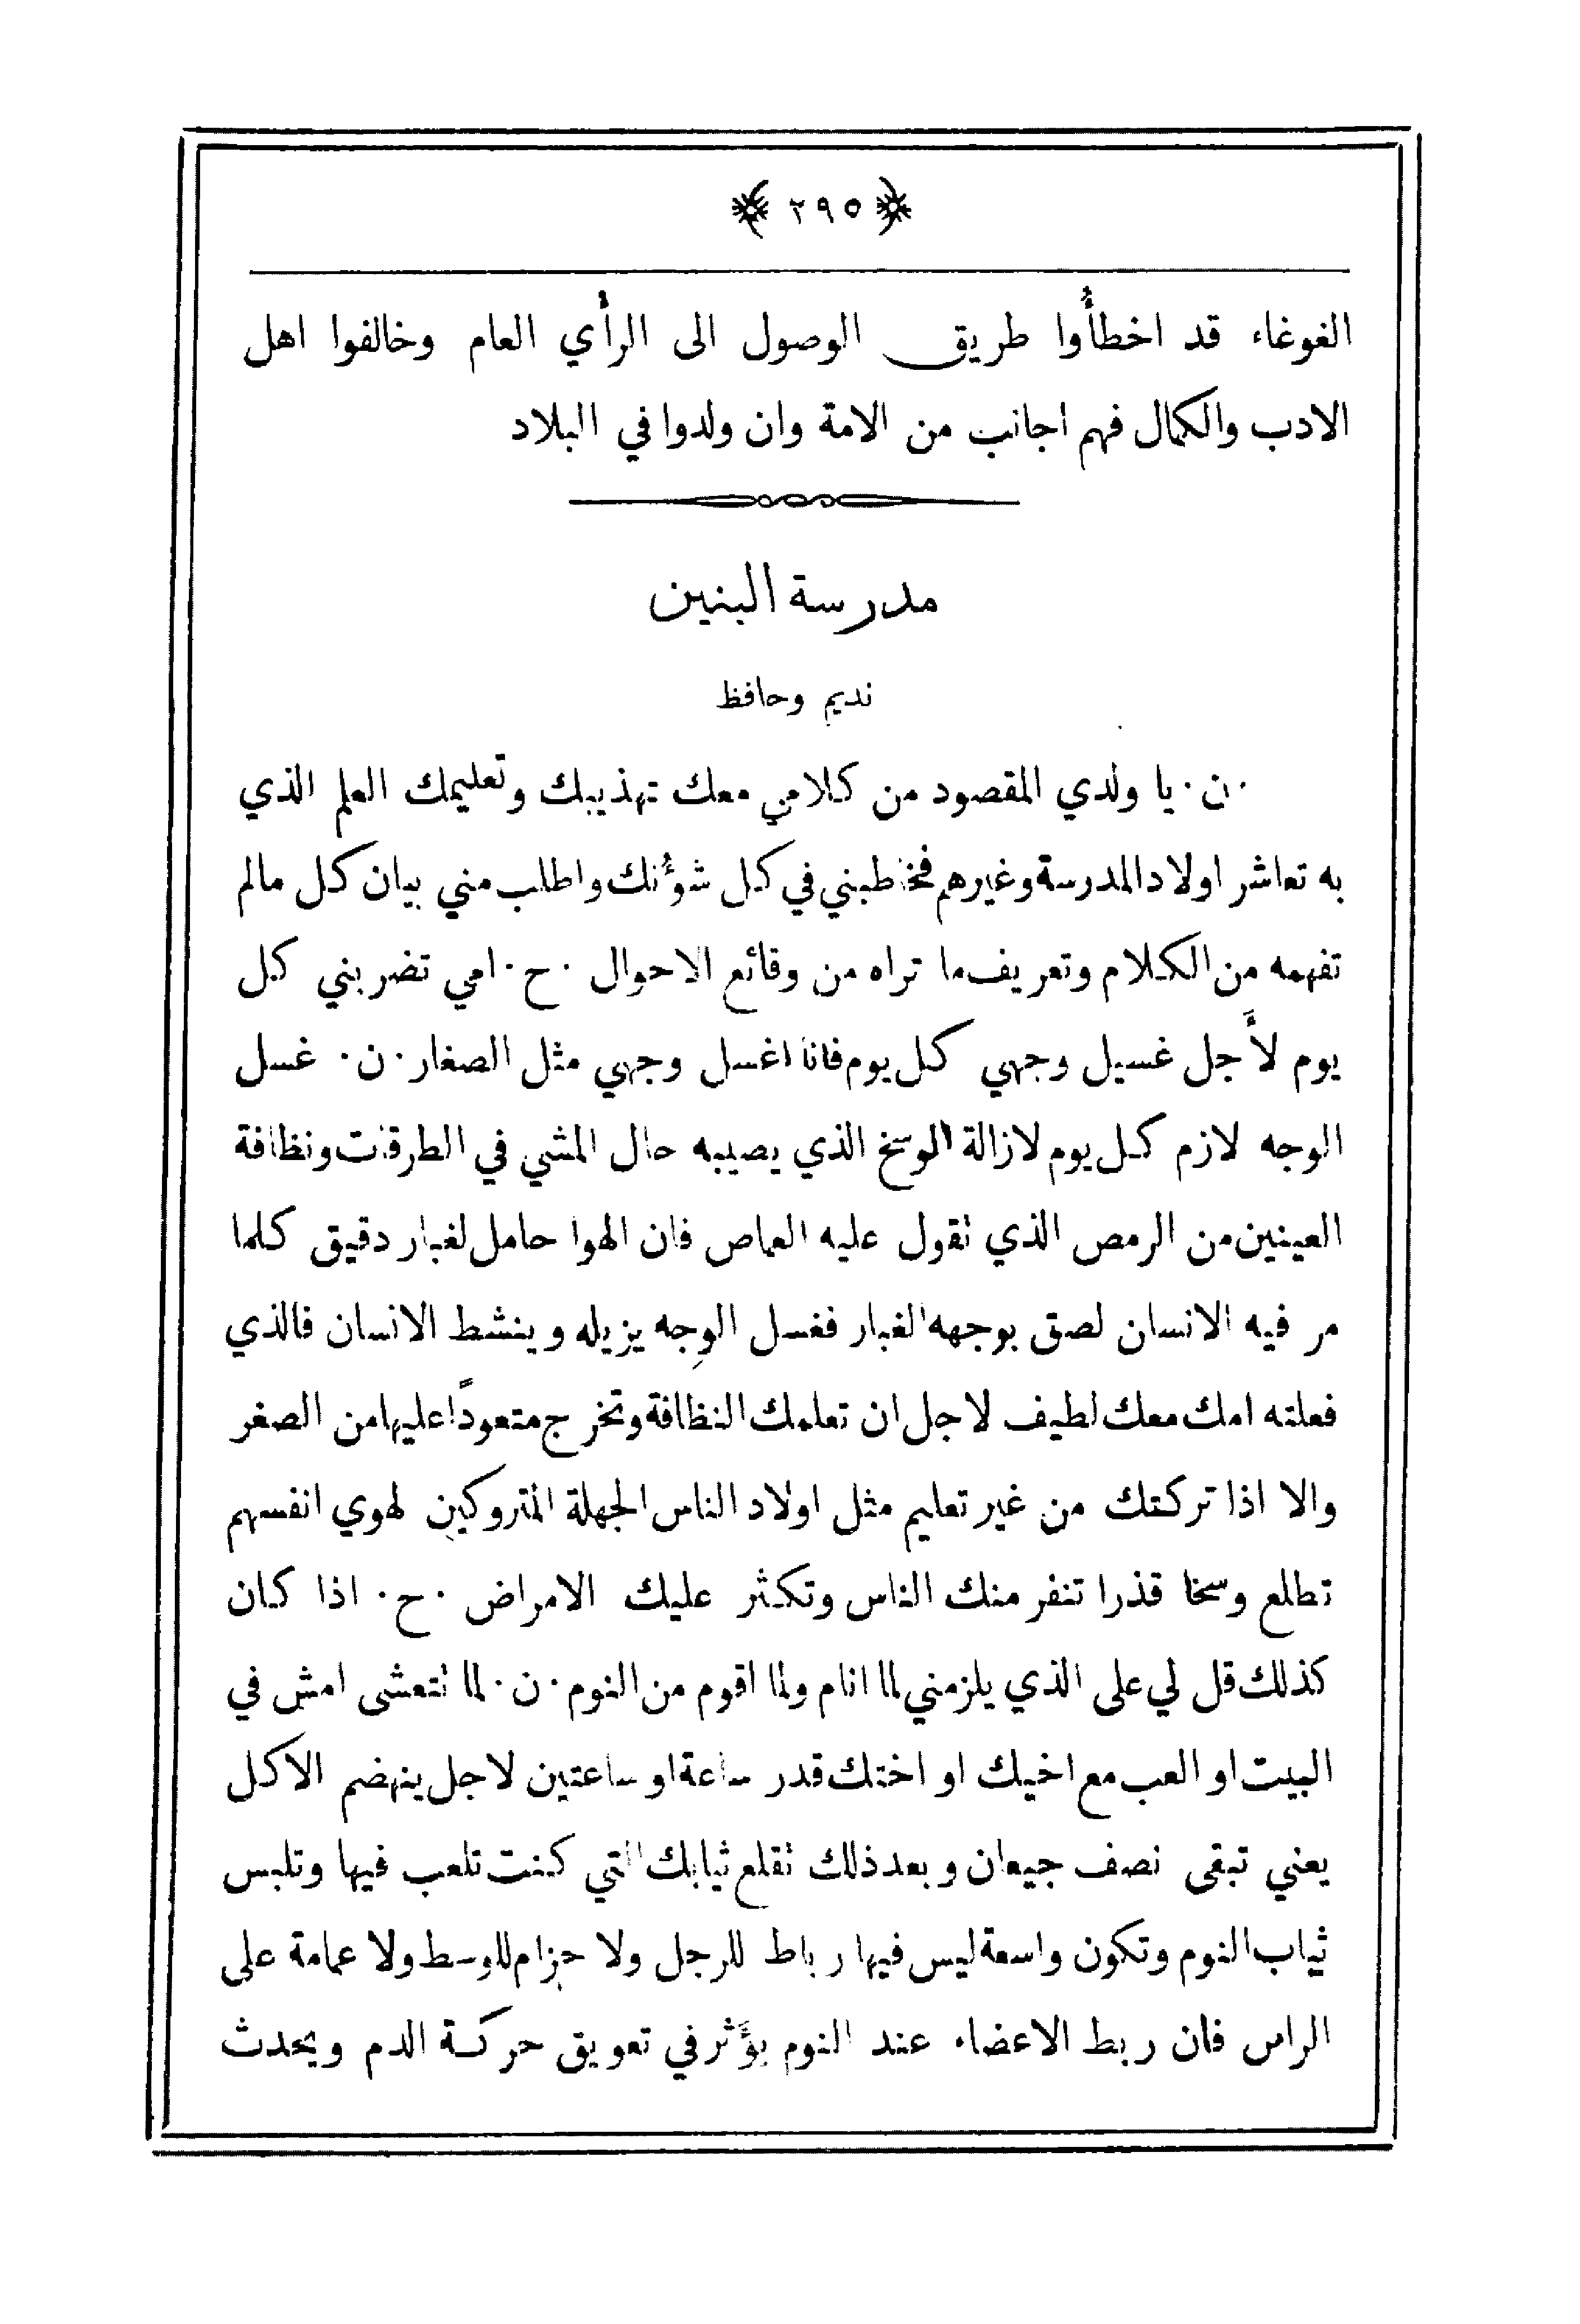 ﴿ ٢٩٥ ﴾
الغوغاء قد اخطأُوا طريق الوصول الى الرأْي العام وخالفوا اهل
الادب والكمال فهم اجانب من الامة وان ولدوا في البلاد
مدرسة البنين
نديم وحافظ
٠ن٠ يا ولدي المقصود من كلامي معك تهذيبك وتعليمك العلم الذي
به تعاشر اولاد المدرسة وغيرهم فخاطبني في كل شوُّنك واطلب مني بيان كل مالم
تفهمه من الكلام وتعريف ما تراه من وقائع الاحوال ٠ح٠ امي تضربني كل
يوم لأَجل غسيل وجهي كل يوم فانا اغسل وجهي مثل الصغار ٠ن٠ غسل
الوجه لازم كل يوم لازالة الوسخ الذي يصيبه حال المشي في الطرقات ونظافة
العينين من الرمص الذي نقول عليه العماص فان الهوا حامل لغبار دقيق كلما
مر فيه الانسان لصق بوجهه الغبار فغسل الوجه يزيله وينشط الانسان فالذي
فعلته امك معك لطيف لاجل ان تعلمك النظافة وتخرج متعودًا عليها من الصغر
والا اذا تركتك من غير تعليم مثل اولاد الناس الجهلة المتروكين لهوي انفسهم
تطلع وسخا قذرا تنفر منك الناس وتكثر عليك الامراض ٠ح٠ اذا كان
كذلك قل لي على الذي يلزمني لما انام ولما اقوم من النوم ٠ن٠ لما نتعشى امش في
البيت او العب مع اخيك او اختك قدر ساعة او ساعتين لاجل ينهضم الاكل
يعني تبقى نصف جيعان وبعد ذلك نقلع ثيابك التي كنت تلعب فيها وتلبس
ثياب النوم وتكون واسعة ليس فيها رباط للرجل ولا حزام للوسط ولا عمامة على
الراس فان ربط الاعضاء عند النوم يؤَثر في تعويق حركة الدم ويحدث